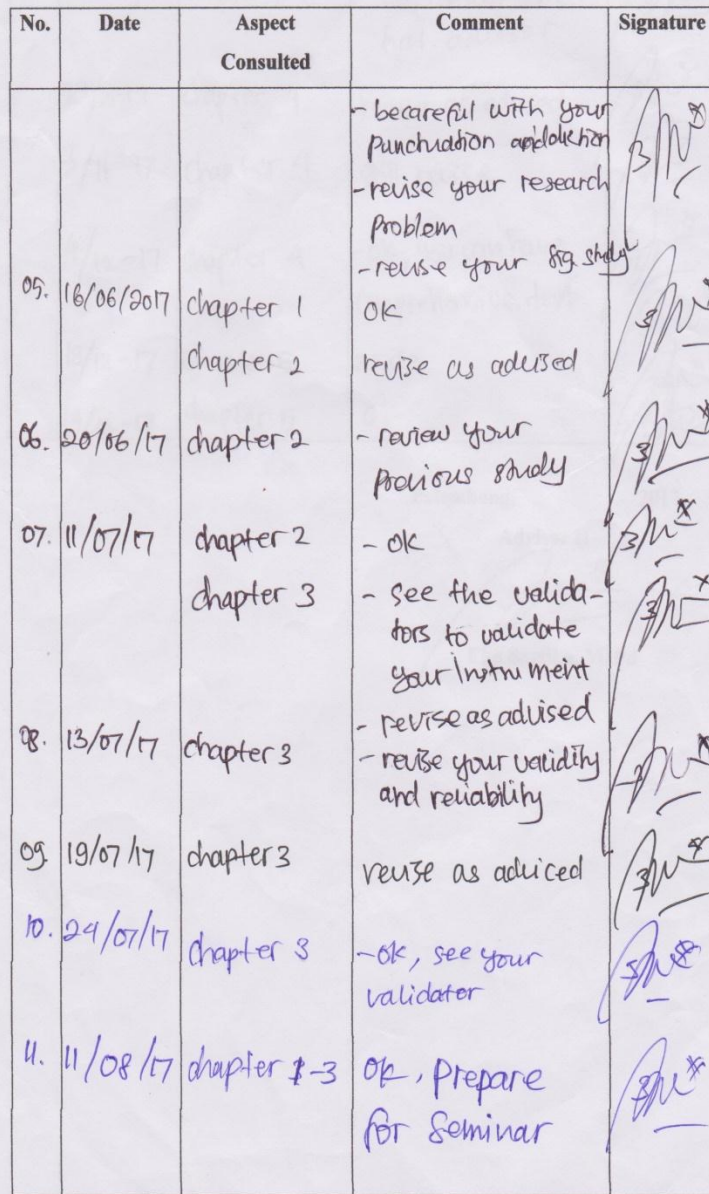 No. Date Aspect Consulted Comment Signature
- becareful with your
punctuation and diction
- revise your research
problem
- revise your sig study
05. 16/06/2017 chapter 1 OK
chapter 2 revise as advised
06. 20/06/17 chapter 2 - review your
previous study
07. 11/07/17 chapter 2 - OK
chapter 3 - see the valida-
tors to validate
your instrument
- revise as advised
08. 13/07/17 chapter 3 - revise your validity
and reliability
09. 19/07/17 chapter 3 revise as adviced
10. 24/07/17 chapter 3 - OK, see your
validator
11. 11/08/17 chapter 1-3 OK, prepare
for seminar